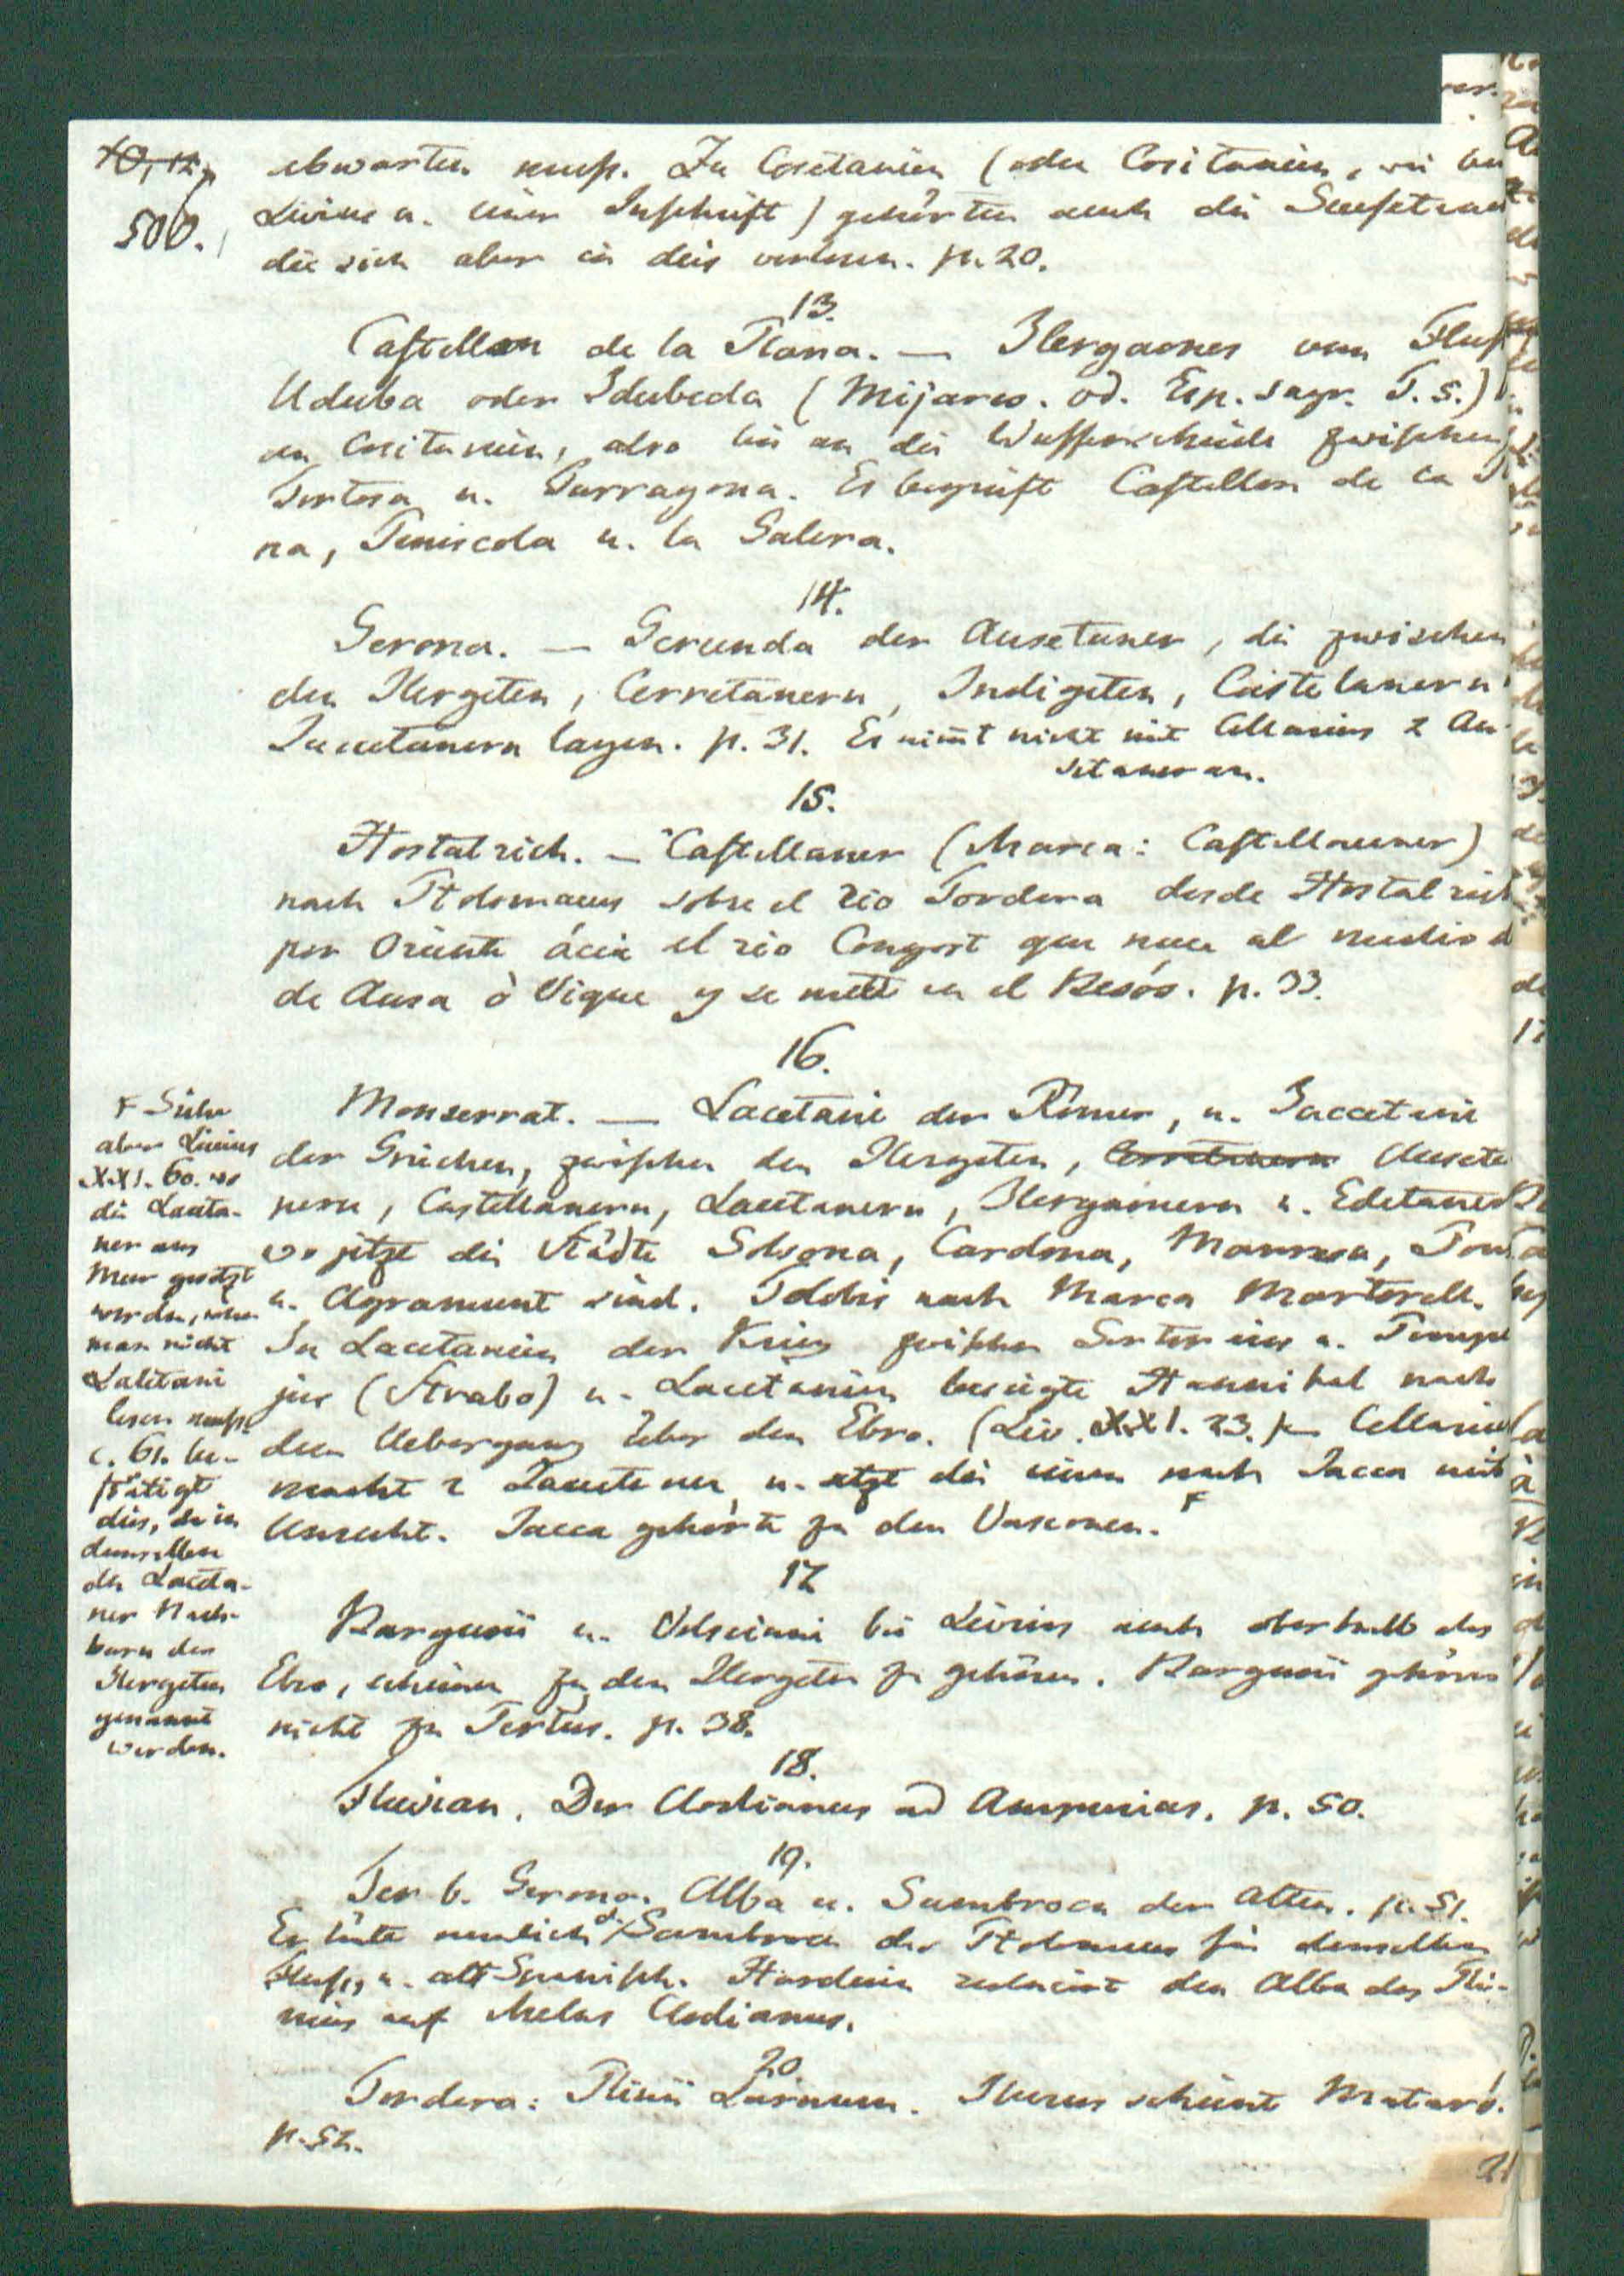 500.
abwarten muß. Zu Cosetanien (oder Cositanien, wie bei
Livius u. einer Inschrift) gehörten auch die Suessetaner
die sich aber in dies verloren. p. 20.
13.
Castellon de la Plana. — Ilergaones vom Fluß
Uduba oder Idubeda (Mijares. od. Esp. sagr. T. 5.)
an Cositanien, also bis an die Wasserscheide zwischen
Tortosa u. Tarragona. Es begreift Castellon de la
na, Peniscola u. la Galera.
14.
Gerona. — Gerunda der Ausetaner, die zwischen
den Ilergeten, Cerretanern, Indigeten, Castelanern
Laccetanern lagen. p. 31. Er nim̄t nicht mit Cellarius 2 Au-
setaner an.
15.
Hostalrich. — Castellaner (Marca: Castellauner)
nach Ptolomaeus sobre el rio Tordera desde Hostalrich
por Oriente ácia el rio Congost que nace al medio d
de Ausa ò Vique y se mete en el Besós. p. 33.
16.
Monserrat. — Lacetani der Römer, u. Jaccetani
der Griechen, zwischen den Ilergeten, Auseta
nern, Castellanern, Lacetanern, Ilergaonern u. Edetaner
wo jetzt die Städte Solsona, Cardona, Manresa,
u. Agramunt sind. Telobis nach Marca Martorell.
In Lacetanien der Krieg zwischen Sertorius u. Pompe
jus (Strabo) u. Lacetanien besiegte Hannibal nach
dem Uebergang über den Ebro. (Liv. XXI. 23.) — Cellarius
macht 2 Laccetaner, u. setzt die einen nach Jacca mit
Unrecht. Jacca gehörte zu den Vasconen. F
F Siehe
aber Livius
XXI. 60. wo
die Laceta-
ner ans
Meer gesetzt
werden, wenn
man nicht
Laletani
lesen muß.
c. 61. be-
stätigt
dies, da in
demselben
die Laceta-
ner Nach-
barn der
Ilergeten
genannt
werden.
17
Bargusii u. Volciani bei Livius auch oberhalb des
Ebro, scheinen zu den Ilergeten zu gehören. Bargusii gehören
nicht zu Tertus. p. 38.
18.
Fluvian. Der Clodianus ad Ampurias. p. 50.
19.
Ter b. Gerona. Alba u. Sambroca der Alten. p. 51.
Er hält nemlich d. Sambroca des Ptolomaeus für denselben
Fluß, u. alt Spanisch. Harduin reducirt den Alba des Pli-
nius auf Melas Clodianus.
20
Tordera: Plinii Larnum. Iluro scheint Mataró.
p. 52.